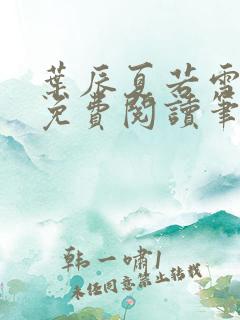 葉辰夏若雪
免費閱讀筆
韩一啸1
未经同意禁止转载